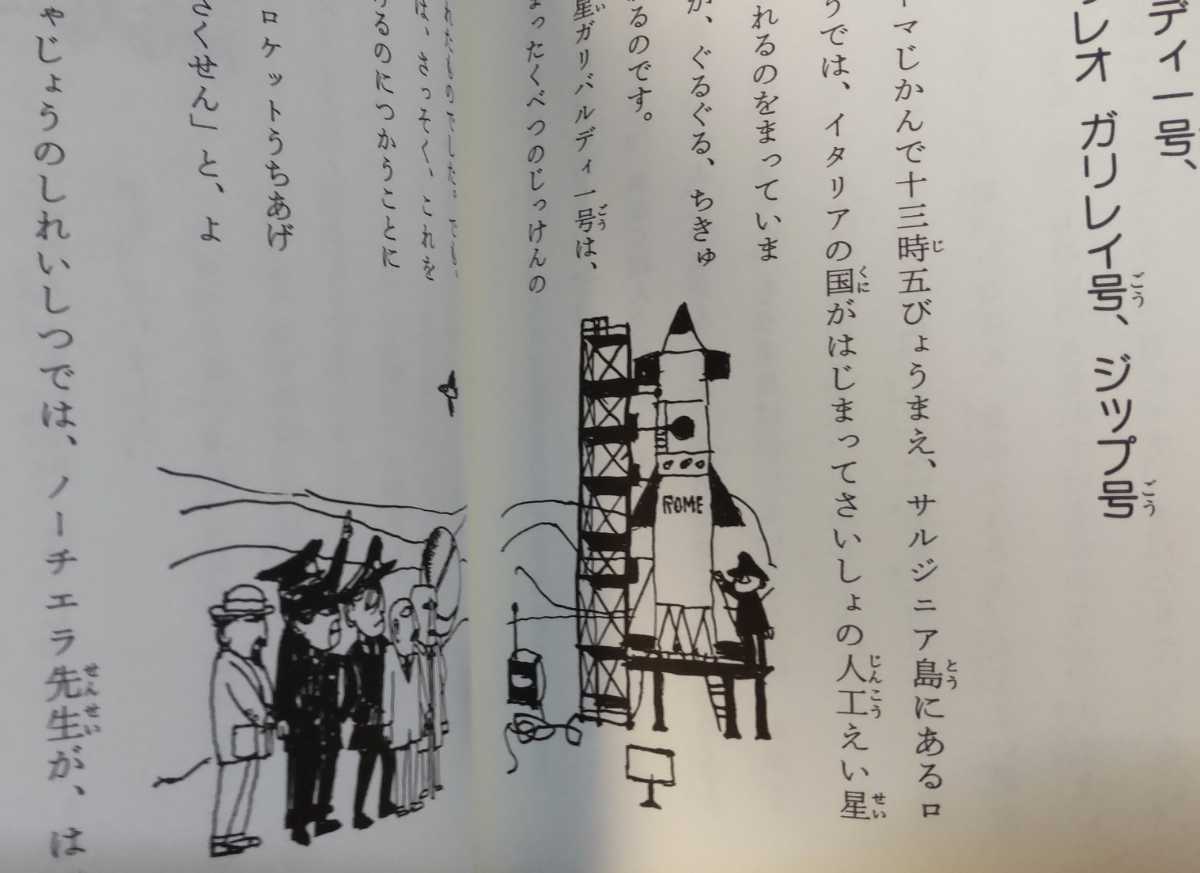 ディ一号、
レオ ガリレイ号、ジップ号
ーマじかんで十三時五びょうまえ、サルジニア島にあるロ
うでは、イタリアの国がはじまってさいしょの人工えい星
れるのをまっていま
が、ぐるぐる、ちきゅ
るのです。
星ガリバルディ一号は、
まったくべつのじっけんの
は、さっそく、これを
けるのにつかうことに
ロケットうちあげ
さくせん」と、よ
ゃじょうのしれいしつでは、ノーチェラ先生が、は
ROME